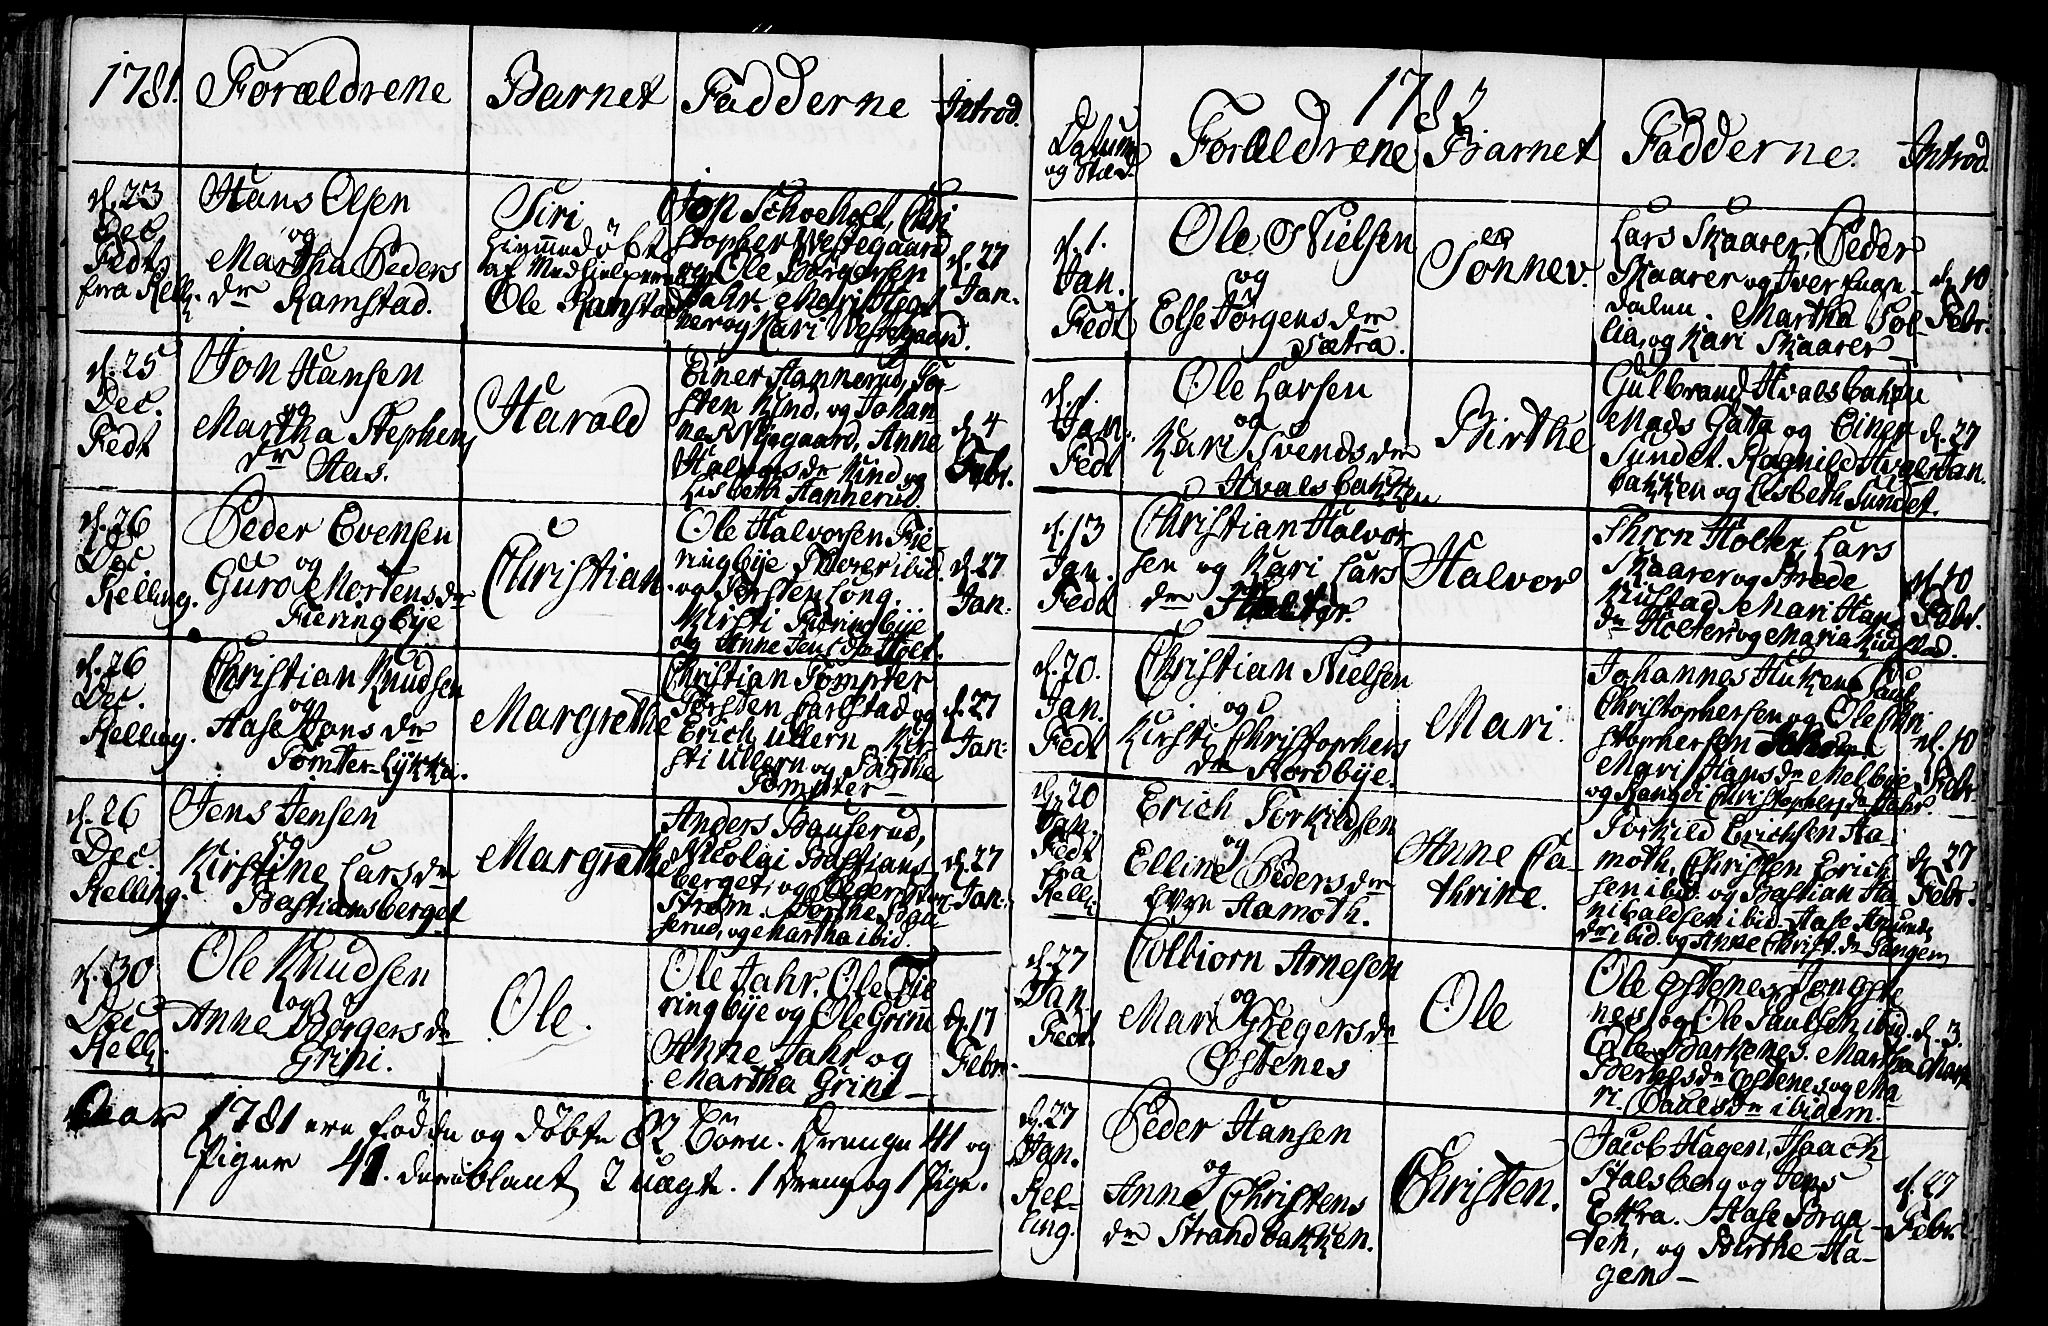 1781. Forældrene Barnet Fadderne Introd.
d. 23
Dec.
Fedt
fra Kell.
Hans Olsen
og
Martha Peders
dr Ramstad.
Siri
hiemmedöbt
af Medhielperen
Ole Ramstad
Jon Schoeholt, Chri
stopher Westegaard
og Ole Börgersen
Jahr. Mari
og Kari Westegaard.
d. 27
Jan.
d. 25
Dec.
Fedt
Jon Hansen
og
Martha Stephens
dr
Aas.
Harald
Einer Hannerud, Tor-
sten Kind, og Johan-
nes Nyegaard, Anne
Halvorsdr Kind og
Lisbeth Hannerud.
d. 4
Febr.
d. 26
Dec
Kelling.
Peder Evensen
og
Guro Mortensdr
Fieringbÿe
Christian.
Ole Halvorsen Fie-
ringbÿe Thorer ibid.
og Torsten Long.
Kirsti Fieringbÿe
og Anne Jensdr Holt.
d. 27
Jan:
d. 26
Dec.
Kelling.
Christian Knudsen
og
Aase Hansdr
Tömter-Lÿkka.
Margrethe
Christian Tömpter
Torsten Carlstad og
Erich Ullern Kir-
sti Ullern og Birthe
Tömpter
d. 27
Jan:
d. 26
Dec.
Kelling.
Jens Jensen
og
Kirstine Larsdr
Bastiansberget
Margrethe
Anders Bauserud,
Nicolai Bastians-
berget, og Peder Stor-
ström. Dorthe Bau-
serud, og Martha ibid.
d. 27
Jan:
d. 30
Dec
Kell:
Ole Knudsen
og
Anne Börgersdr
Grini.
Ole.
Ole Jahr, Ole Fie
ringbÿe og Ole Grini
Anne Jahr og
Martha Grini
d. 17
Febr.
Aar 1781 ere födde og döbte 82 Börn. Drenge 41 og
Piger 41. deriblant 2 uægte. 1 Dreng og 1 Pige.
1782
Datum
og Stæd. Forældrene Barnet Fadderne. Introd.
d. 1.
Jan.
Fedt
Ole Nielsen
og
Else Jörgensdr
Sætra.
Sönnev.
Lars Skaarer, Peder
Skaarer og Iver Engn-
dalen. Martha Sol-
lia, og Kari Skaarer
d. 10
Febr.
d. 1.
Jan.
Fedt
Ole Larsen
og
Kari Svendsdr
Hvalsbakken
Birthe
Gulbrand Hvalsbakken
Mads Gata og Einer
Sundet. Ragnild Hvals-
bakken og Lisbeth Sundet.
d. 27
Jan.
d. 13
Jan.
Fedt
Christian Halvor
sen og Kari Lars
dr Holter.
Halvor
Thron Holter, Lars
Skaarer og Brede
Kiustad Mari Hans
dr Holter og Maria Kiustad.
d. 10
Febr.
d. 20.
Jan.
Fedt
Christian Nielsen
og
Kirsti Christophers
dr Nordbÿe.
Mari.
Johannes Huken Paul
Christophersen og Ole Chri-
stophersen
Mari Hansdr Melbÿe
og Rangdi Christophersdr Jahr.
d. 10
Febr.
d. 20
Jan.
Fedt
fra
Kell:
Erich Torkildsen
og
Elline Pedersdr
Evre Aamoth.
Anne Ca-
thrine.
Torkild Erichsen Aa-
moth, Christen Erich-
sen ibid. og Bastian Ha-
nibaldsen ibid. Aase Amunds
dr ibid. og Anne Christ.dr Tangen
d. 27
Febr.
d. 27
Jan.
Fedt.
Colbiorn Arnesen
og
Mari Gregersdr
Östenes
Ole
Ole Östenes, Jon Öste
nes, og Ole Paulsen ibid.
Ole Barkenes. Martha
Bertelsdr Östenes og Ma-
ri Paulsdr ibidem.
d. 3.
Mart
d. 27
Jan.
Kel-
ling.
Peder Hansen
og
Anne Christens
dr Strandbakken.
Christen.
Jacob Hagen, Isaach
Stalsberg og Jens
Ekra. Aase Braa-
ten, og Birthe Ha-
gen
d. 27
Febr.